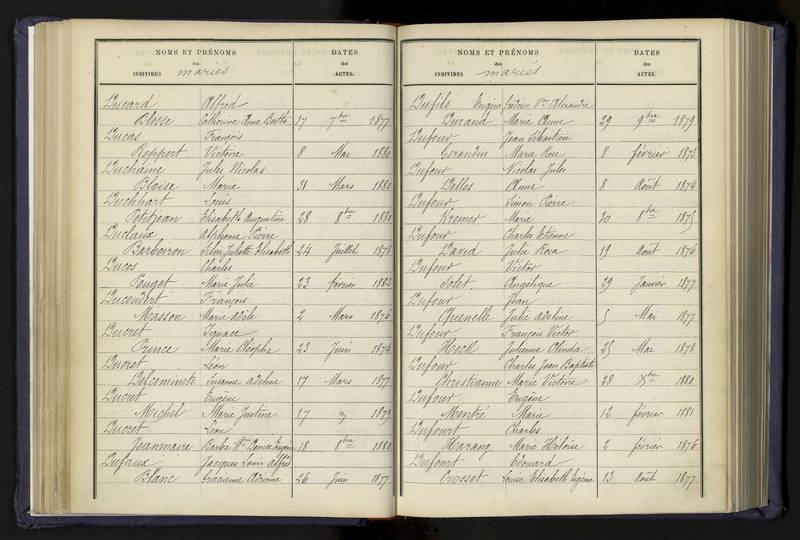 NOMS ET PRÉNOMS DATES
des des
INDIVIDUS mariés ACTES.
Ducard Alfred
Blosse Catherine Anne Barthe 17 7bre 1877
Ducas François
Reppert Victoire 8 Mai 1880
Duchaine Jules Nicolas
Bloise Marie 31 Mars 1880
Duchhart Louis
Petitjean Elisabeth Augustine 28 8bre 1880
Duclaux Alphonse Pierre
Barboiron Juliette Elisabeth 24 Juillet 1878
Ducos Charles
Pouget Marie Julie 23 février 1882
François
Masson Marie Adèle 2 Mars 1876
Ducret Ignace
Prince Marie 23 Juin 1874
Ducret Léon
Delcominete Susanne Adeline 17 Mars 1877
Ducret Eugène
Michel Marie Justine 17 1879
Ducret Léon
Jeanmaire Barbe Denise Eugénie 18 8bre 1880
Dufaux Jacques Louis Alfred
Blanc Gracianne Adrienne 26 Juin 1877
NOMS ET PRÉNOMS DATES
des des
INDIVIDUS mariés ACTES.
Dufils Eugène frédéric Vor Alexandre
Durand Marie Anne 29 9bre 1879
Dufour Jean Sébastien
Gérardin Marie Rose 8 février 1873
Dufour Nicolas Jules
Belles Anne 8 Août 1874
Dufour Simon Pierre
Kremer Marie 30 8bre 1875
Dufour Charles Etienne
David Julie Rosa 19 Août 1876
Dufour Victor
Solet Angélique 29 Janvier 1877
Dufour Jean
Quenelle Julie Adeline 5 Mai 1877
Dufour François Victor
Hock Julienne Clinda 25 Mai 1878
Dufour Charles Jean Baptiste
Christianne Marie Victoire 28 Xbre 1880
Dufour Eugène
Mentré Marie 12 février 1881
Dufourt Charles
Harang Marie Héloïse 2 février 1876
Dufourt Edouard
Crosset Louise Elisabeth Eugénie 13 Août 1877